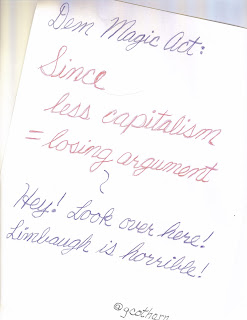 Dem Magic Act:
Since
less capitalism
= losing argument
}
Hey! Look over here!
Limbaugh is horrible!
@gcothern